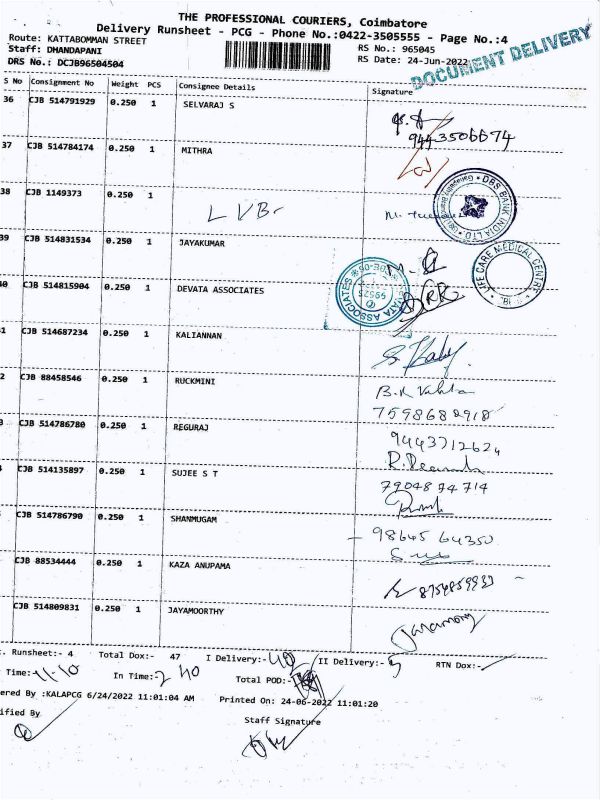 THE PROFESSIONAL COURIERS, Coimbatore
Delivery Runsheet - PCG - Phone No.:0422-3505555 - Page No.:4
Route: KATTABOMMAN STREET
Staff: DHANDAPANI
RS No.: 965045
DRS No.: DCJB96504504
RS Date: 24-Jun-2022
DOCUMENT DELIVERY
S No Consignment No Weight PCS Consignee Details Signature
36 CJB 514791929 0.250 1 SELVARAJ S
9443506674
37 CJB 514784174 0.250 1 MITHRA
38 CJB 1149373 0.250 1 LVB
DBS BANK INDIA LTD.
39 CJB 514831534 0.250 1 JAYAKUMAR
LIFE CARE MEDICAL CENTRE
40 CJB 514815904 0.250 1 DEVATA ASSOCIATES
DEVATA ASSOCIATES
1 CJB 514687234 0.250 1 KALIANNAN
2 CJB 88458546 0.250 1 RUCKMINI
7598682918
3 CJB 514786780 0.250 1 REGURAJ
9443712624
CJB 514135897 0.250 1 SUJEE S T
7904874714
CJB 514786790 0.250 1 SHANMUGAM
98645 64350
CJB 88534444 0.250 1 KAZA ANUPAMA
CJB 514809831 0.250 1 JAYAMOORTHY
Jayamoorthy
. Runsheet:- 4 Total Dox:- 47 I Delivery:- 42 II Delivery:- 5 RTN Dox:-
Time:- 11-10 In Time:- 2 40 Total POD:-
ered By :KALAPCG 6/24/2022 11:01:04 AM Printed On: 24-06-2022 11:01:20
ified By
Staff Signature